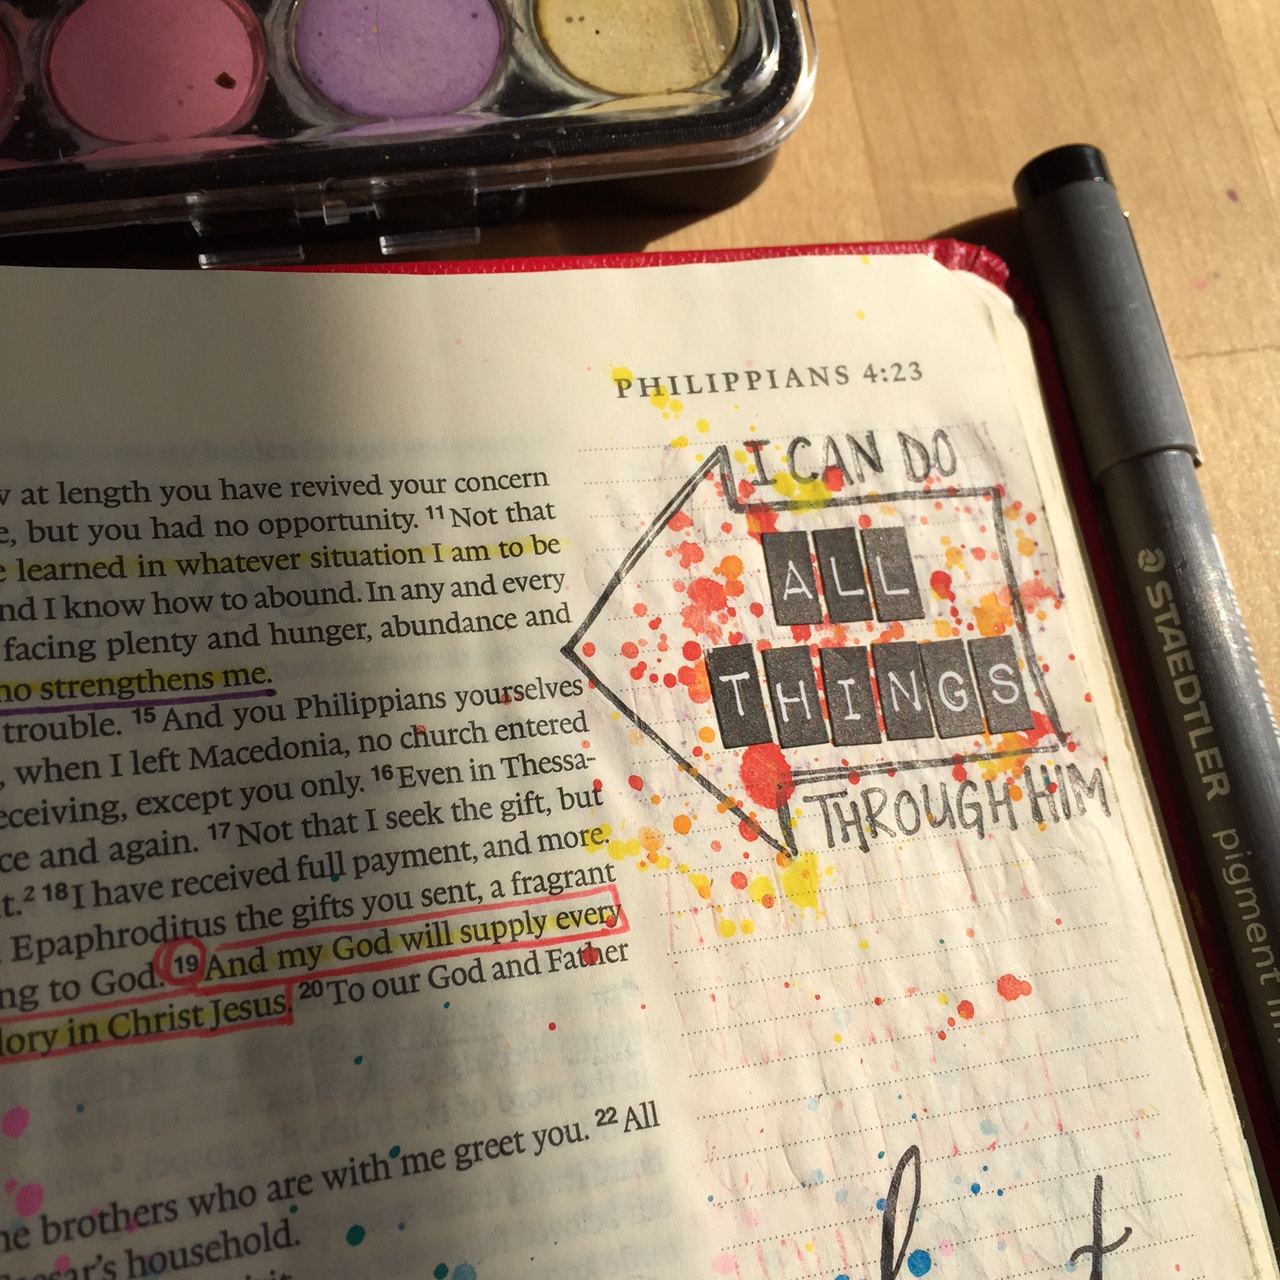 PHILIPPIANS 4:23
at length you have revived your concern
but you had no opportunity. 11 Not that
learned in whatever situation I am to be
I know how to abound. In any and every
facing plenty and hunger, abundance and
strengthens me.
trouble. 15 And you Philippians yourselves
when I left Macedonia, no church entered
except you only. 16 Even in Thessa-
and again. 17 Not that I seek the gift, but
2 18 I have received full payment, and more.
Epaphroditus the gifts you sent, a fragrant
to God. 19 And my God will supply every
in Christ Jesus. 20 To our God and Father
brothers who are with me greet you. 22 All
household.
I CAN DO
ALL
THINGS
THROUGH HIM
STAEDTLER pigment